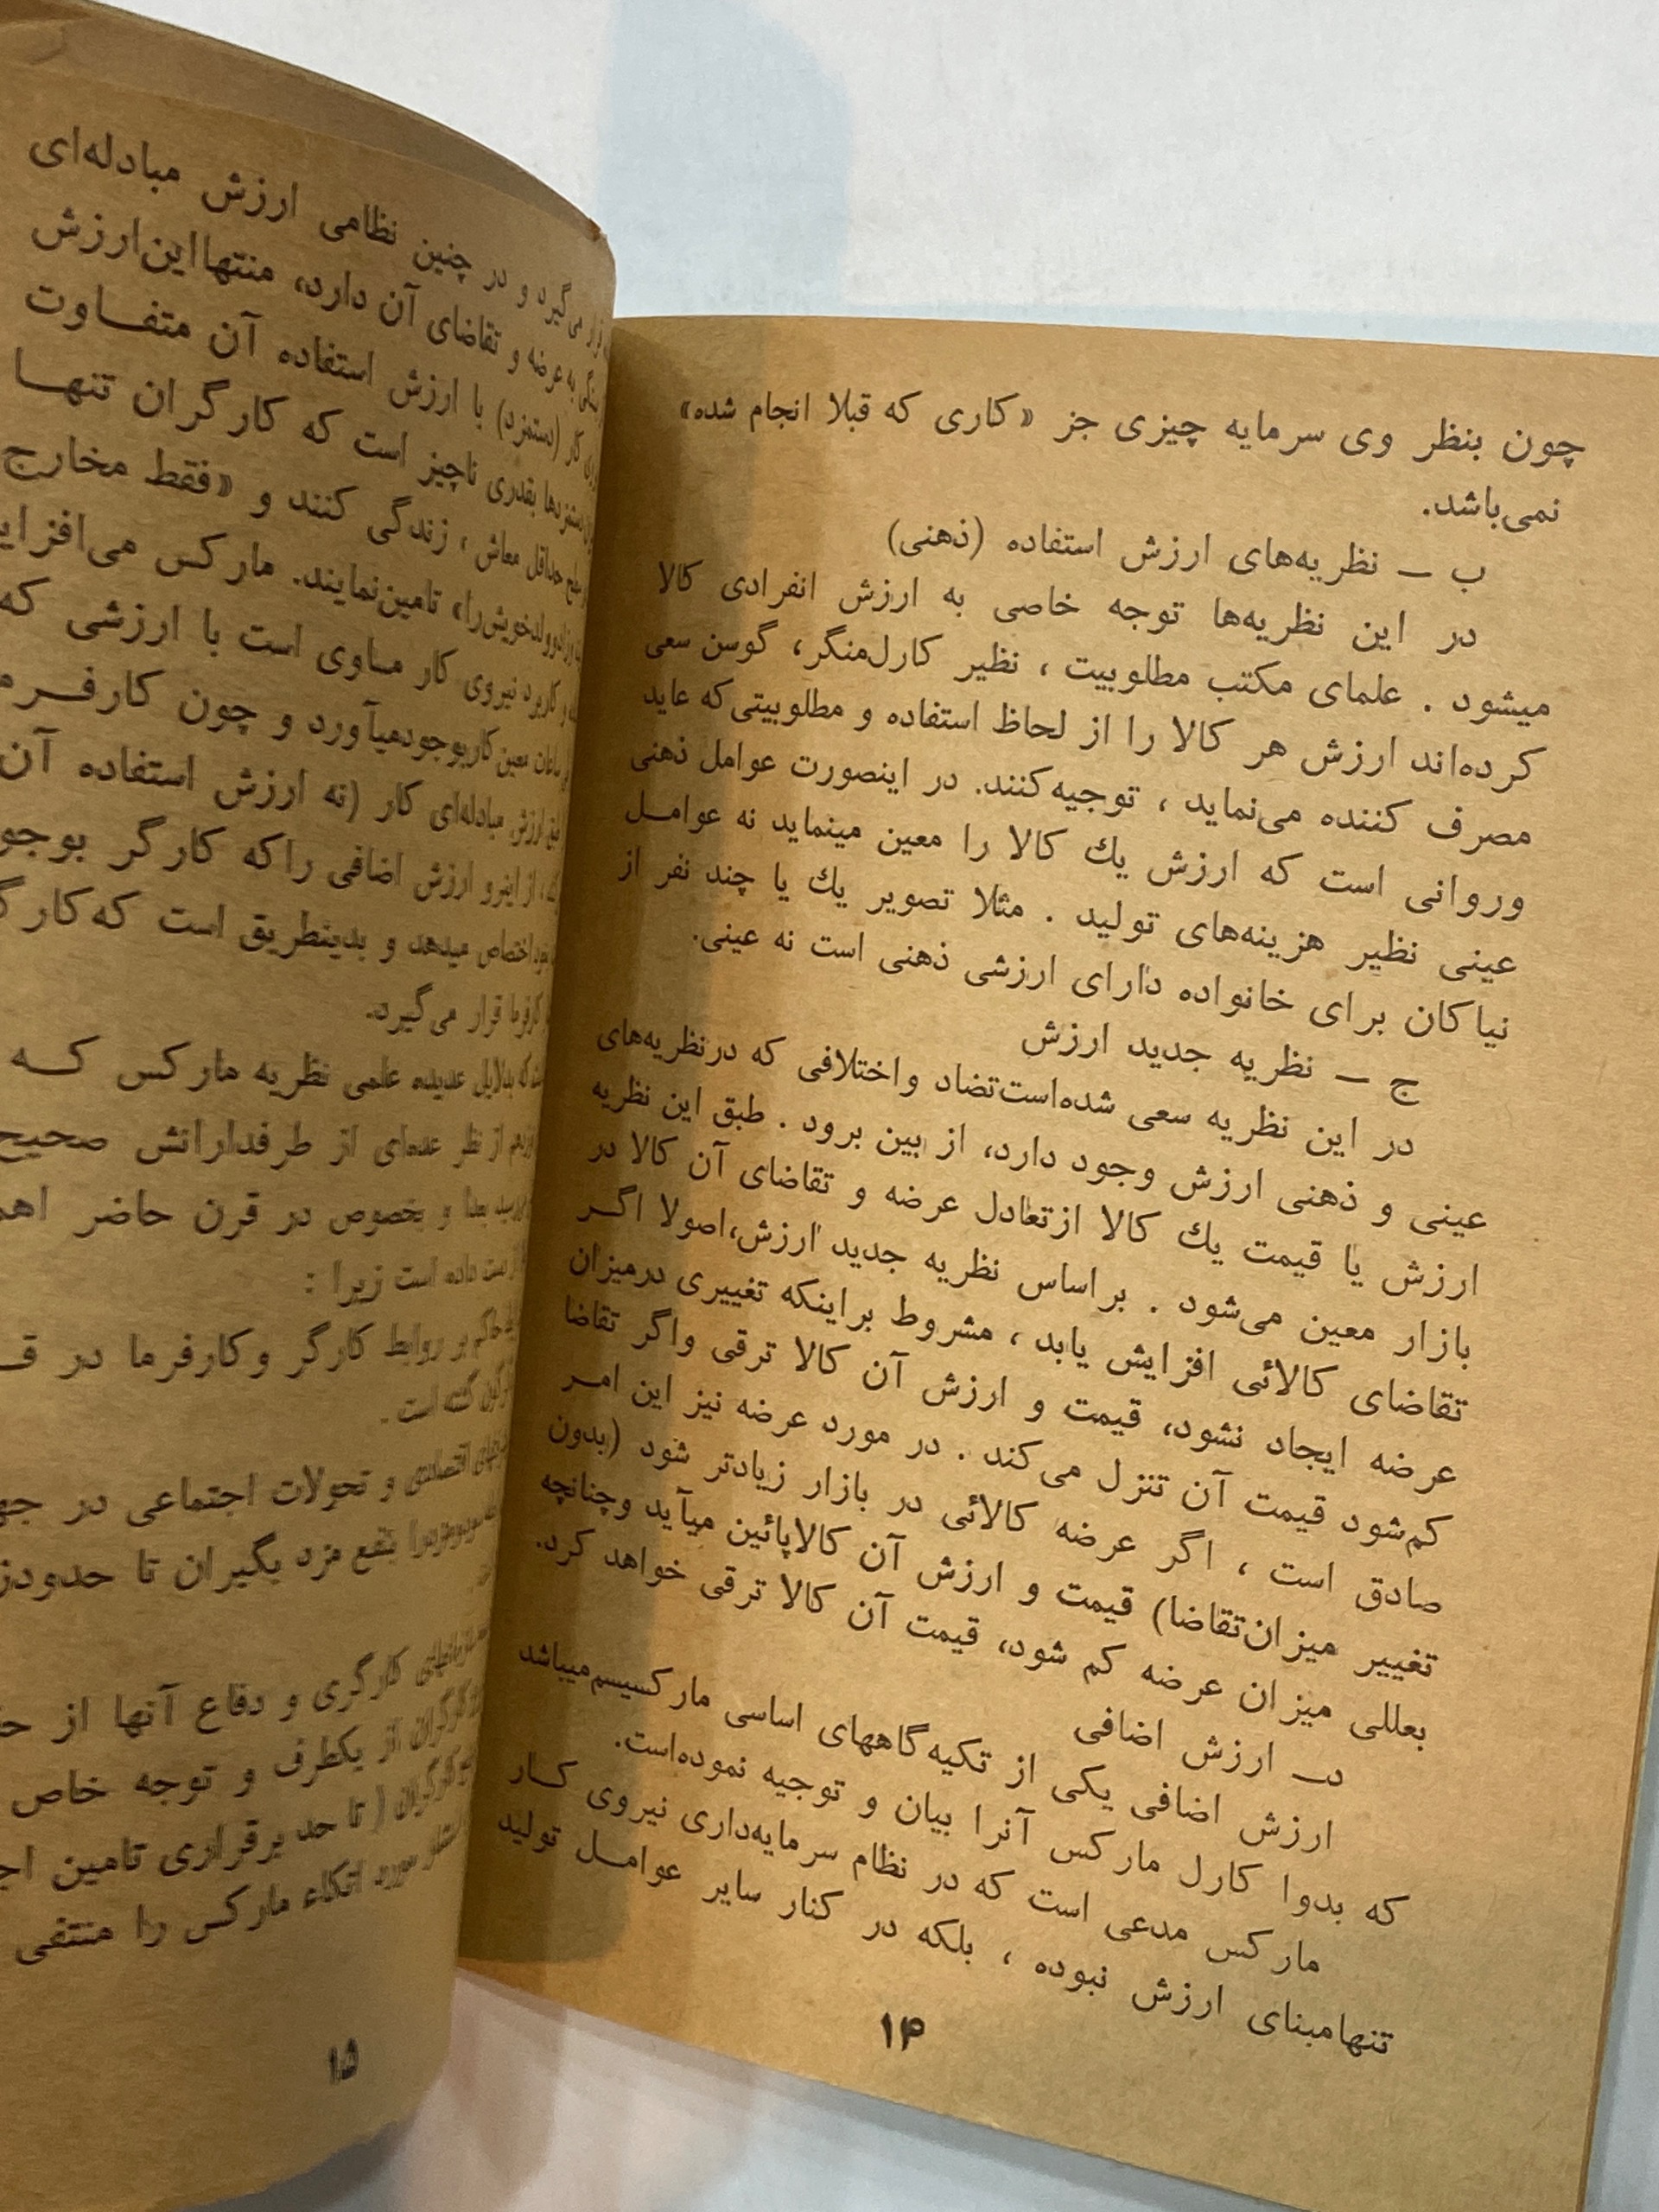 چون بنظر وی سرمایه چیزی جز «کاری که قبلا انجام شده»
نمی‌باشد.
ب – نظریه‌های ارزش استفاده (ذهنی)
در این نظریه‌ها توجه خاصی به ارزش انفرادی کالا
میشود . علمای مکتب مطلوبیت ، نظیر کارل‌منگر، گوسن سعی
کرده‌اند ارزش هر کالا را از لحاظ استفاده و مطلوبیتی‌که عاید
مصرف کننده می‌نماید ، توجیه‌کنند. در اینصورت عوامل ذهنی
وروانی است که ارزش یك کالا را معین مینماید نه عوامل
عینی نظیر هزینه‌های تولید . مثلا تصویر یك یا چند نفر از
نیاکان برای خانواده دارای ارزشی ذهنی است نه عینی.
ج – نظریه جدید ارزش
در این نظریه سعی شده‌است‌تضاد واختلافی که درنظریه‌های
عینی و ذهنی ارزش وجود دارد، از بین برود . طبق این نظریه
ارزش یا قیمت یك کالا ازتعادل عرضه و تقاضای آن کالا در
بازار معین می‌شود . براساس نظریه جدید ارزش،اصولا اگر
تقاضای کالائی افزایش یابد ، مشروط براینکه تغییری درمیزان
عرضه ایجاد نشود، قیمت و ارزش آن کالا ترقی واگر تقاضا
کم‌شود قیمت آن تنزل می‌کند . در مورد عرضه نیز این امر
صادق است ، اگر عرضه کالائی در بازار زیادتر شود (بدون
تغییر میزان‌تقاضا) قیمت و ارزش آن کالاپائین میآید وچنانچه
بعللی میزان عرضه کم شود، قیمت آن کالا ترقی خواهد کرد.
د– ارزش اضافی
ارزش اضافی یکی از تکیه‌گاههای اساسی مارکسیسم‌میباشد
که بدوا کارل مارکس آنرا بیان و توجیه نموده‌است.
مارکس مدعی است که در نظام سرمایه‌داری نیروی کار
تنهامبنای ارزش نبوده ، بلکه در کنار سایر عوامل تولید
۱۴
می‌گیرد و در چنین نظامی ارزش مبادله‌ای
به عرضه و تقاضای آن دارد، منتهااین‌ارزش
کار (دستمزد) با ارزش استفاده آن متفاوت
دستمزدها بقدری ناچیز است که کارگران تنها
حداقل معاش ، زندگی کنند و «فقط مخارج
تامین‌نمایند. مارکس
کاربرد نیروی کار مساوی است با ارزشی که
ساعات معین کاربوجودمیآورد و چون
ارزش مبادله‌ای کار (نه ارزش استفاده آن
از اینرو ارزش اضافی راکه کارگر
اختصاص میدهد و بدینطریق است که
کارفرما قرار می‌گیرد.
که بدلایل عدیده علمی نظریه مارکس که
از نظر عده‌ای از طرفدارانش صحیح
بعدا و بخصوص در قرن حاضر
از دست داده است زیرا :
حاکم بر روابط کارگر وکارفرما در
گشته است .
اقتصادی و تحولات اجتماعی در
بنفع مزد بگیران تا
کارگری و دفاع آنها از
کارگران از یکطرف و توجه خاص
کارگران ( تا حد برقراری تامین
مورد اتکاء مارکس را منتفی
۱۵